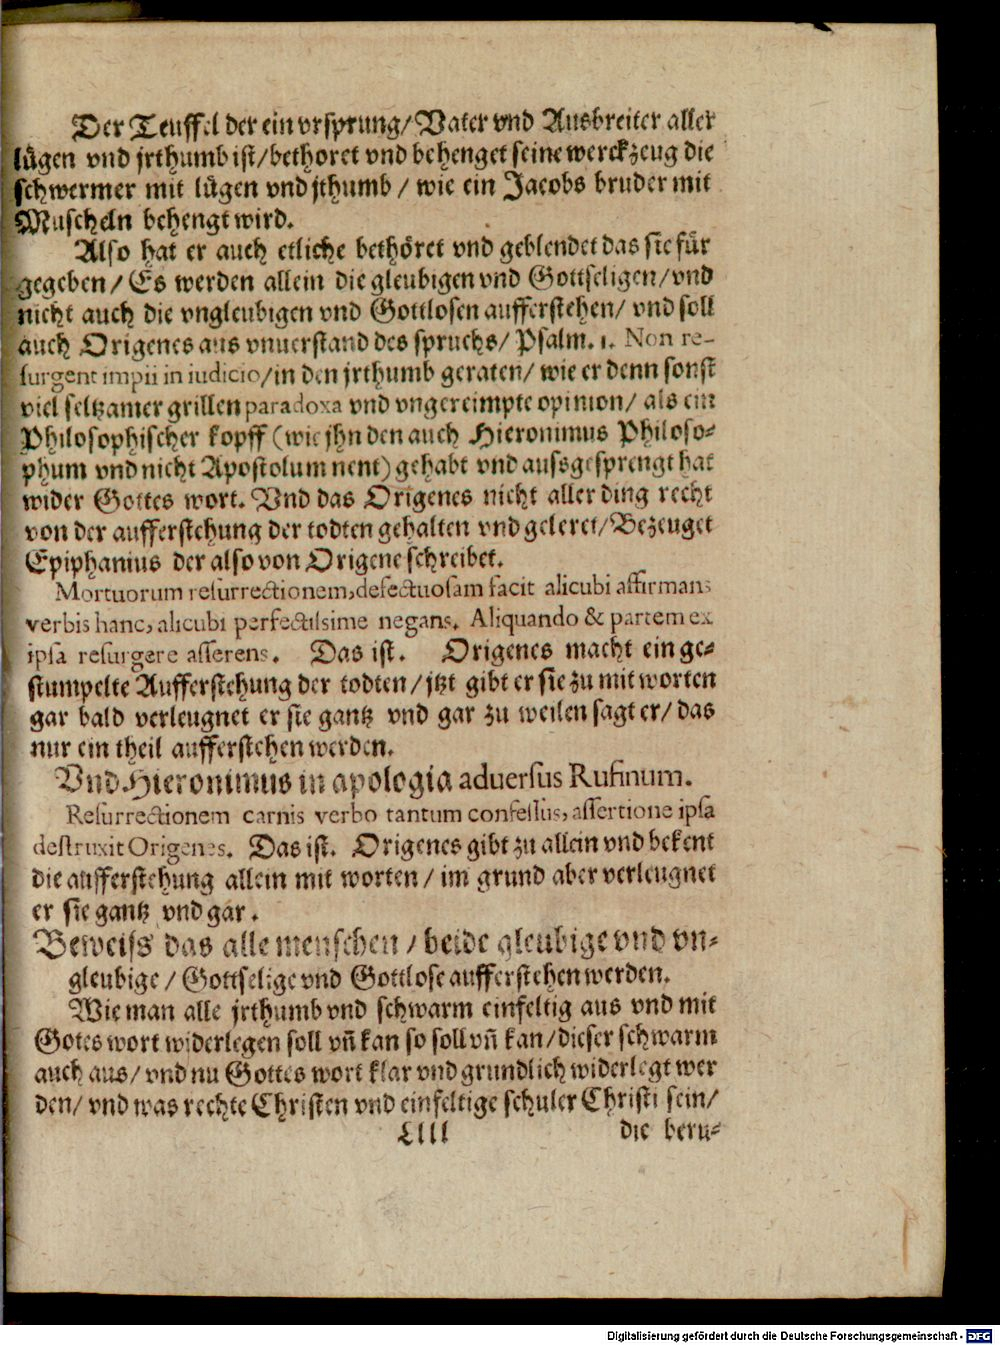 Der Teuffel der ein vrsprung/ Vater vnd Ausbreiter aller
lügen vnd jrthumb ist/ bethoret vnd behenget seine werckzeug die
schwermer mit lügen vnd jthumb / wie ein Jacobs bruder mit
Muscheln behengt wird.
Also hat er auch etliche bethöret vnd geblendet das sie für
gegeben/ Es werden allein die gleubigen vnd Gottseligen/ vnd
nicht auch die vngleubigen vnd Gottlosen aufferstehen/ vnd soll
auch Origenes aus vnuerstand des spruchs/ Psalm. 1. Non re-
surgent impii in iudicio/ in den jrthumb geraten/ wie er denn sonst
viel seltzamer grillen paradoxa vnd vngereimpte opinion/ als ein
Philosophischer kopff (wie jhn den auch Hieronimus Philoso-
phum vnd nicht Apostolum nent) gehabt vnd aussgesprengt hat
wider Gottes wort. Vnd das Origenes nicht aller ding recht
von der aufferstehung der todten gehalten vnd geleret/ Bezeuget
Epiphanius der also von Origene schreibet.
Mortuorum resurrectionem, defectuosam facit alicubi affirmans
verbis hanc, alicubi perfectissime negans. Aliquando & partem ex
ipsa resurgere asserens. Das ist. Origenes macht ein ge-
stumpelte Aufferstehung der todten/ jtzt gibt er sie zu mit worten
gar bald verleugnet er sie gantz vnd gar zu weilen sagt er/ das
nur ein theil aufferstehen werden.
Vnd Hieronimus in apologia aduersus Rufinum.
Resurrectionem carnis verbo tantum confessus, assertione ipsa
destruxit Origenes. Das ist. Origenes gibt zu allein vnd bekent
die aufferstehung allein mit worten / im grund aber verleugnet
er sie gantz vnd gar.
Beweiss das alle menschen / beide gleubige vnd vn-
gleubige / Gottselige vnd Gottlose aufferstehen werden.
Wie man alle jrthumb vnd schwarm einfeltig aus vnd mit
Gotes wort widerlegen soll vñ kan so soll vñ kan/ dieser schwarm
auch aus/ vnd nu Gottes wort klar vnd grundlich widerlegt wer
den/ vnd was rechte Christen vnd einfeltige schuler Christi sein/
Llll die beru-
Digitalisierung gefördert durch die Deutsche Forschungsgemeinschaft - DFG